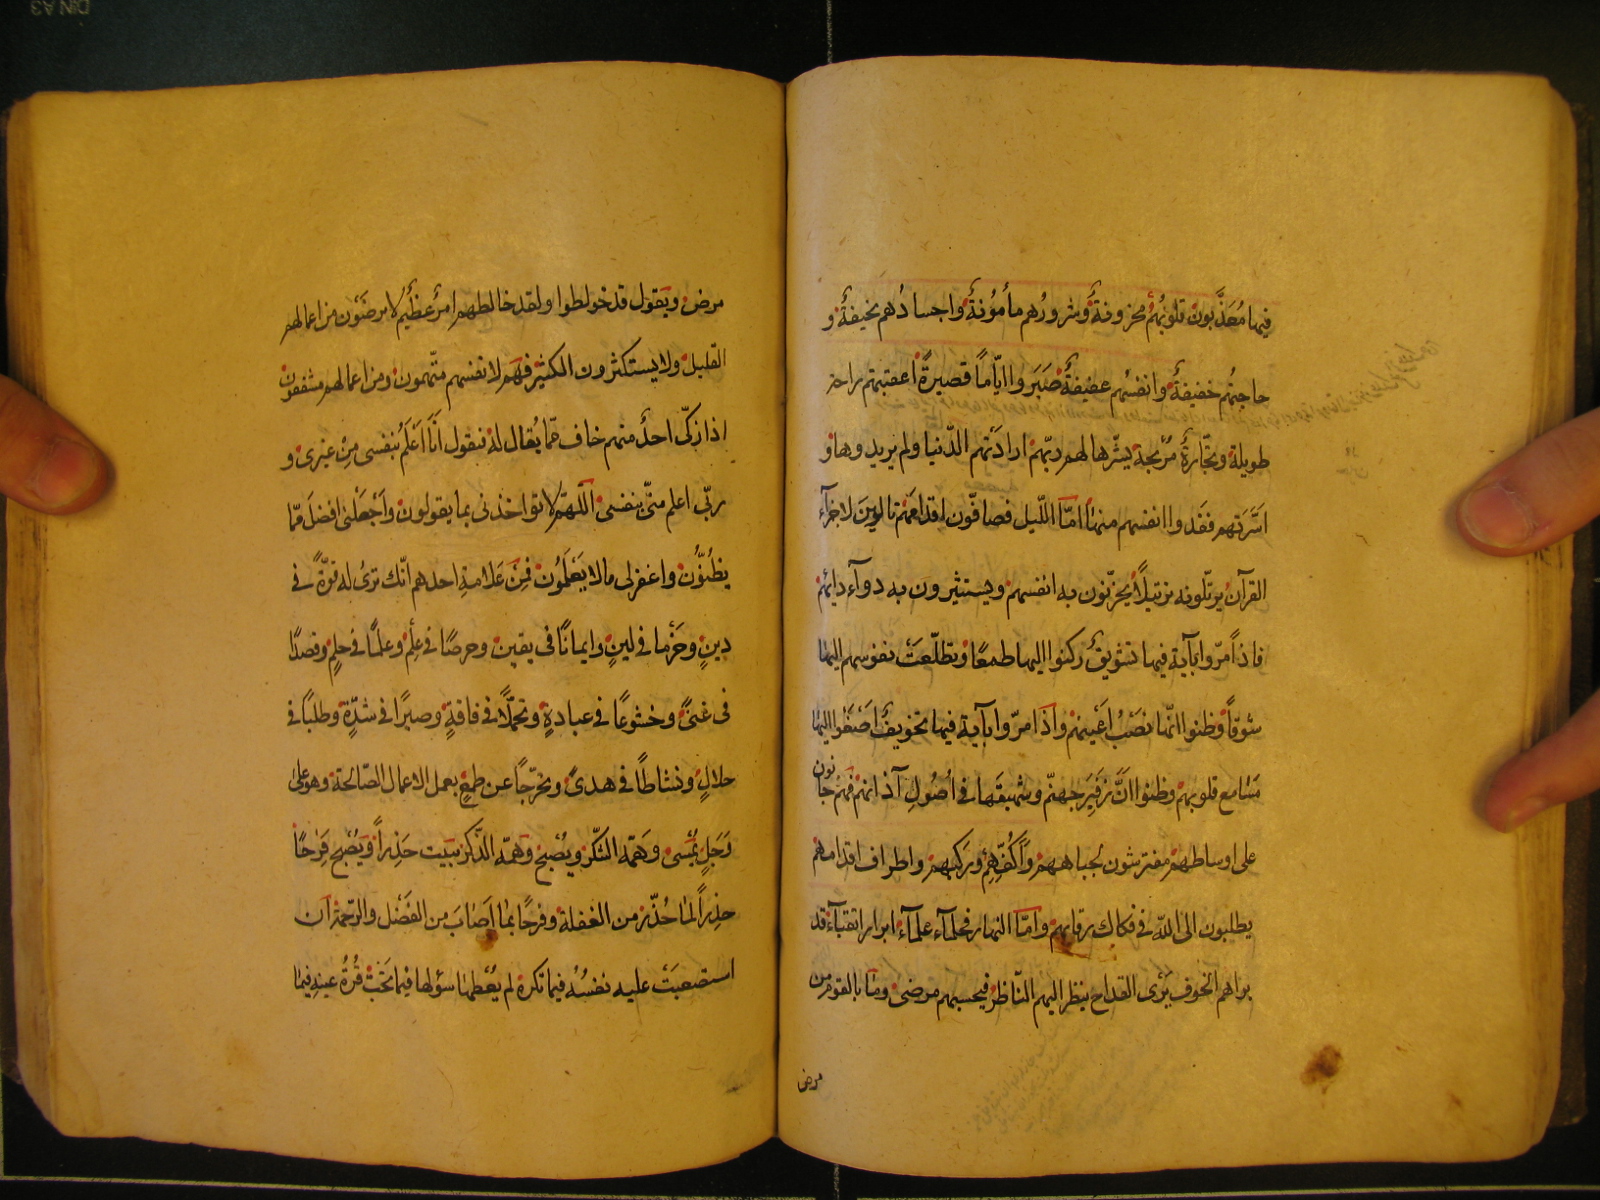 فيها مُعَذَّبون قلوبُهُم محزونةٌ وشرورُهم مأمُونةٌ واجسادُهم نحيفةٌ و
حاجتُهم خفيفةٌ وانفسُهم عفيفةٌ صَبَروا ايّاماً قصيرةً اعقبتهم راحة
طويلة وتجّارةٌ مُرْبحة يسّرها لهم ربّهم ارادتهم الدّنيا ولم يريدوها و
اَسَرَتهم ففَدوا انفسهم منها امّا اللّيل فصافّون اقدامَهُم تالينَ لاجزآء
القرآن يرتّلونه ترتيلاً يحزّنون به انفسهم ويستثيرون به دوآء دائهم
فاذا مرّوا بآية فيها تشويقٌ ركنوا اليها طمعًا وتطلّعَتْ نفوسهم اليها
شوقاً وظنوا انّها نصْبُ اَعْينهم واذا مرّوا بآية فيها تخويفٌ اصْغَوْا اليها
مَسامع قلوبهم وظنوا انَّ زفيَر جهنّم وشهيقَها في اُصُولِ آذانهم فهم حانون
على اوساطهم مفترشون لجباههم واَكُفّهِم وركبهم واطراف اقدامهم
يطلبون الى اللّه في فكاك رقابهم وامّا النهار فحلمآء علمآء ابرار اتقيآء قد
براهم الخوف بَرْىَ القداح ينظر اليهم النّاظر فيحسبهم مرضى وما بالقوم من
مرض
مرض ويَقول قد خولطوا ولقد خالطهم امرٌ عظيمٌ لا يرضَوْن من اعمالهم
القليل ولا يستكثرون الكثير فهم لانفسهم متّهمون ومن اعمالهم مشفقون
اذا زكّى احدٌ منهم خاف ممّا يُقال له فيقول اَنَا اَعْلَمُ بنفسى مِنْ غيرى و
ربّى اعلم منّى بنفسى اللّهمّ لا تؤاخذنى بما يقولون واَجْعَلْنى افضلَ ممّا
يظُنّون واغفر لى مالا يَعْلَمُون فمِنْ عَلامةِ احدهم انّك ترى له قوّةً فى
دينٍ وحَزْما فى لينٍ وايمانًا فى يقين وحرصًا فى عِلْم وعلمًا فى حلمٍ وقصدًا
فى غنىً وخشوعًا فى عبادةٍ وتجملّاً فى فاقةٍ وصبرًا فى شدّةٍ وطلبًا فى
حلالٍ ونشاطًا فى هدىً وتحرّجًا عن طمعٍ يعمل الاعمال الصّالحة وهو على
وَجَلٍ يُمْسى وهَمّه الشّكر ويُصْبح وهَمّه الذّكر يبَيت حَذِراً ويُصْبح فَرَحًا
حذِراً لما حُذّر من الغفلة وفرحًا بما اَصابَ من الفَضْل والرّحمة ان
استصعبَتْ عليه نفسُهُ فيما تكره لم يُعْطها سؤلها فيما تحَبّ قُرّةُ عينهِ فيما